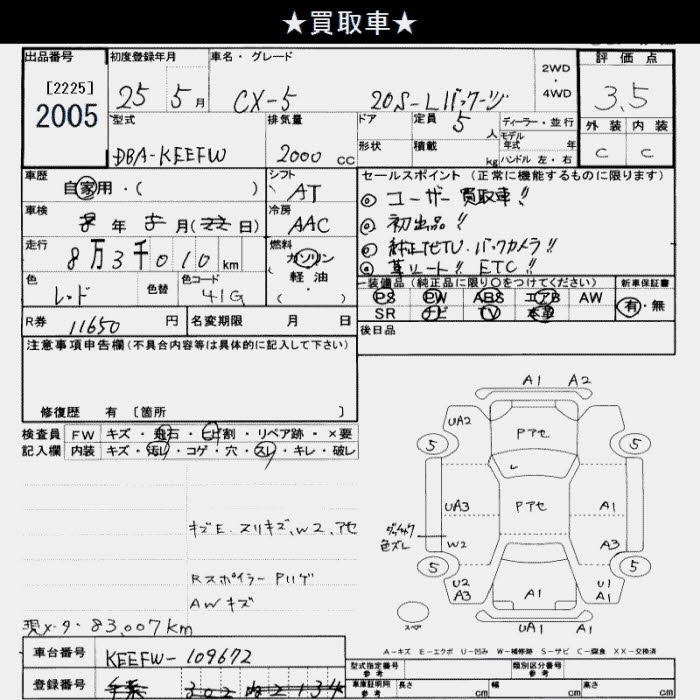 ★買取車★
出品番号 初度登録年月 車名・グレード 2WD ・ 4WD 評価点
[2225]
2005 25 5月 CX-5 20S-Lパッケージ 3.5
型式 排気量 ドア 定員 5人 ディーラー・並行 外装 内装
DBA-KEEFW 2000 CC 形状 積載 kg モデル年式 年 ハンドル 左・右 C C
車歴 シフト セールスポイント (正常に機能するものに限ります)
自家用・( ) AT ◎ ユーザー買取車!!
車検 冷房 ◎ 初出品!!
年 月( 日) AAC ◎ 純正地TV.バックカメラ!!
走行 燃料 ◎ 革シート!! ETC!!
8万3千010km ガソリン
軽・油
( )
色 色替 色コード 装備品 (純正品に限り○をつけてください) 新車保証書
レッド 41G PS PW ABS エアB AW 有・無
SR ナビ TV 本革
R券 11650 円 名変期限 月 日 後日品
注意事項申告欄(不具合内容等は具体的に記入して下さい)
修復歴 有 〔箇所 〕
検査員 FW キズ・飛石・ヒビ割・リペア跡・×要
記入欄 内装 キズ・汚れ・コゲ・穴・スレ・キレ・破レ
A1 A2
UA2 Pアセ
5 5
UA3 Pアセ A1
キズE.スリキズ、W2.アセ
色ズレ W2 A3
5 5
Rスポイラー Pハゲ U2 A3 A1 U1 A1
AWキズ
スペア UA1 A1
現メータ 83,007km
A-キズ E-エクボ U-凹み W-補修跡 S-サビ C-腐食 XX-交換済
車台番号 KEEFW-109672 型式指定番号 参考 類別区分番号 参考
登録番号 車庫証明用 参考 長さ cm 幅 cm 高さ cm